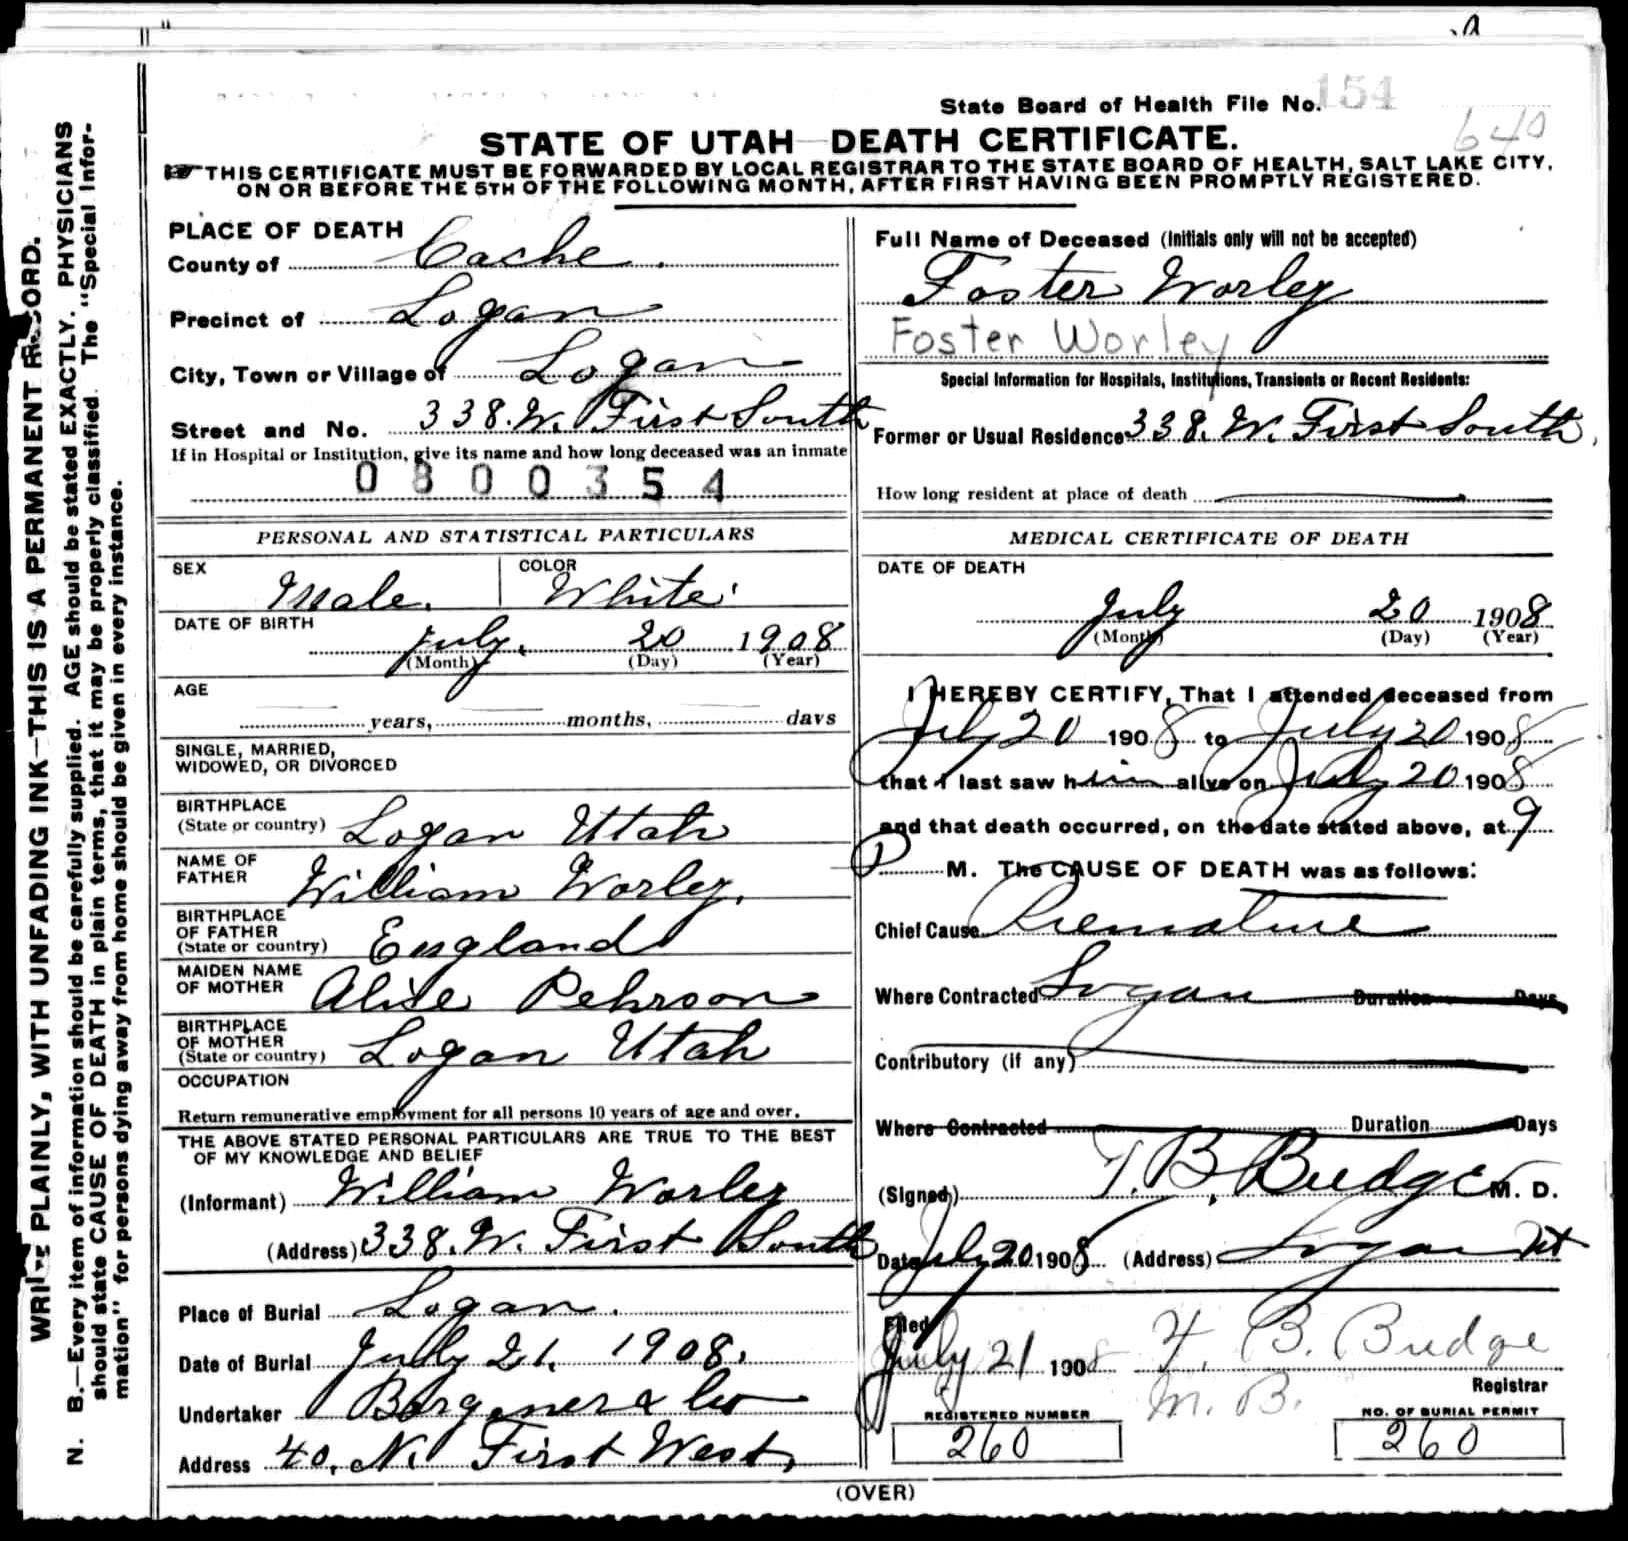 State Board of Health File No. 154
640
STATE OF UTAH—DEATH CERTIFICATE.
THIS CERTIFICATE MUST BE FORWARDED BY LOCAL REGISTRAR TO THE STATE BOARD OF HEALTH, SALT LAKE CITY,
ON OR BEFORE THE 5TH OF THE FOLLOWING MONTH, AFTER FIRST HAVING BEEN PROMPTLY REGISTERED.
WRITE PLAINLY, WITH UNFADING INK—THIS IS A PERMANENT RECORD.
N. B.—Every item of information should be carefully supplied. AGE should be stated EXACTLY. PHYSICIANS
should state CAUSE OF DEATH in plain terms, that it may be properly classified. The "Special Infor-
mation" for persons dying away from home should be given in every instance.
PLACE OF DEATH
County of Cache.
Precinct of Logan
City, Town or Village of Logan
Street and No. 338. W. First South
If in Hospital or Institution, give its name and how long deceased was an inmate
0800354
PERSONAL AND STATISTICAL PARTICULARS
SEX Male. COLOR White.
DATE OF BIRTH July. 20 1908
(Month) (Day) (Year)
AGE
years, months, days
SINGLE, MARRIED,
WIDOWED, OR DIVORCED
BIRTHPLACE
(State or country) Logan Utah
NAME OF
FATHER William Worley.
BIRTHPLACE
OF FATHER
(State or country) England
MAIDEN NAME
OF MOTHER Alise Pehrson
BIRTHPLACE
OF MOTHER
(State or country) Logan Utah
OCCUPATION
Return remunerative employment for all persons 10 years of age and over.
THE ABOVE STATED PERSONAL PARTICULARS ARE TRUE TO THE BEST
OF MY KNOWLEDGE AND BELIEF
(Informant) William Worley
(Address) 338. W. First South
Place of Burial Logan.
Date of Burial July 21. 1908.
Undertaker & Co
Address 40. N. First West,
Full Name of Deceased (Initials only will not be accepted)
Foster Worley
Foster Worley
Special Information for Hospitals, Institutions, Transients or Recent Residents:
Former or Usual Residence 338. W. First South.
How long resident at place of death
MEDICAL CERTIFICATE OF DEATH
DATE OF DEATH
July 20 1908
(Month) (Day) (Year)
I HEREBY CERTIFY, That I attended deceased from
July 20 1908 to July 20 1908
that I last saw him alive on July 20 1908
and that death occurred, on the date stated above, at 9
P M. The CAUSE OF DEATH was as follows:
Chief Cause Premature
Where Contracted Logan Duration Days
Contributory (if any)
Where Contracted Duration Days
(Signed) T. B. Budge M. D.
Date July 20 1908 (Address) Logan Ut
Filed
July 21 1908 T. B. Budge
M. B. Registrar
REGISTERED NUMBER NO. OF BURIAL PERMIT
260 260
(OVER)